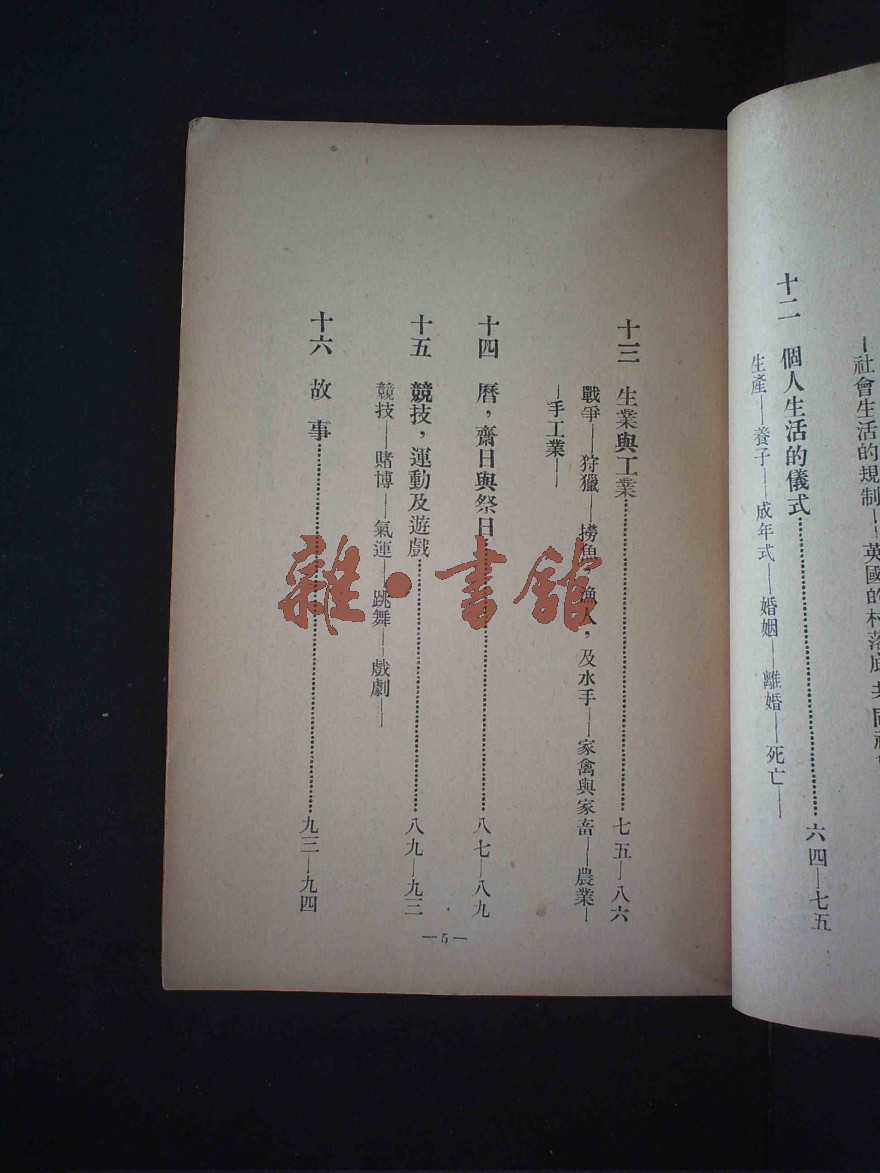 —社會生活的規制——英國的村落底共同社
十二　個人生活的儀式……………六四—七五
生產——養子——成年式——婚姻——離婚——死亡——
十三　生業與工業……………七五—八六
戰爭——狩獵——撈魚，漁人，及水手——家禽與家畜——農業—
—手工業——
十四　曆，齋日與祭日……………八七—八九
十五　競技，運動及遊戲……………八九—九三
競技——賭博——氣運——跳舞——戲劇——
十六　故事……………九三—九四
—5—
雜·書館